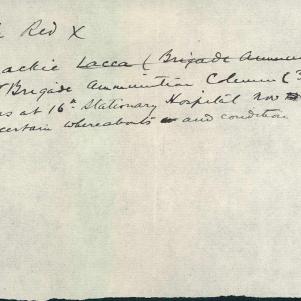 Red X
ackie Lacca (Brigade Ammun
Brigade Ammunition Column (3
as at 16th Stationary Hospital now
certain whereabouts and condition